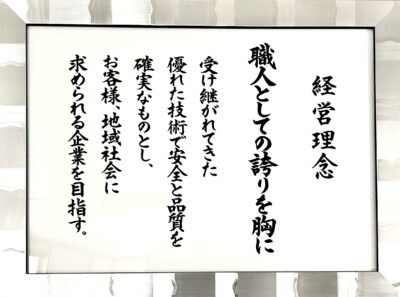 経営理念
職人としての誇りを胸に
受け継がれてきた
優れた技術で安全と品質を
確実なものとし、
お客様、地域社会に
求められる企業を目指す。